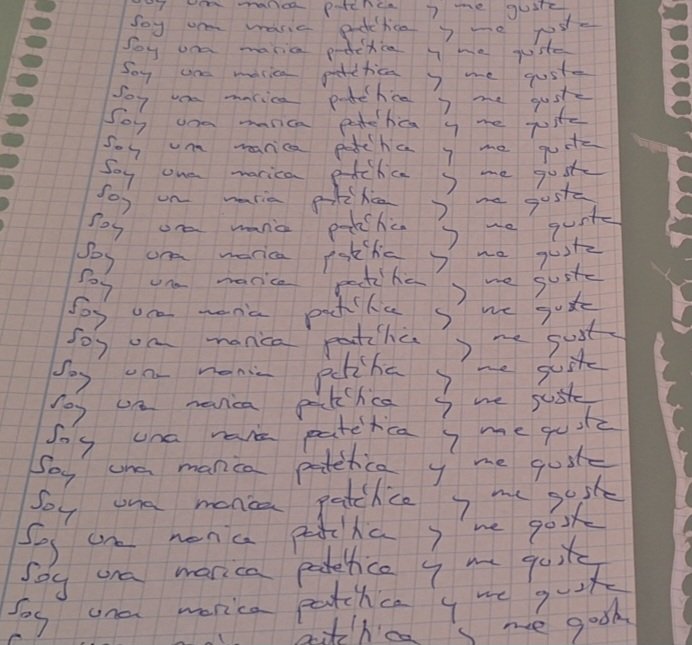 Soy una marica patética y me gusta
Soy una marica patética y me gusta
Soy una marica patética y me gusta
Soy una marica patética y me gusta
Soy una marica patética y me gusta
Soy una marica patética y me gusta
Soy una marica patética y me gusta
Soy una marica patética y me gusta
Soy una maria patética y me gusta
Soy una marica patética y me gusta
Soy una marica patética y me gusta
Soy una marica patética y me gusta
Soy una marica patética y me gusta
Soy una marica patética y me gusta
Soy una marica patética y me gusta
Soy una marica patética y me gusta
Soy una marica patética y me gusta
Soy una marica patética y me gusta
Soy una marica patética y me gusta
Soy una marica patética y me gusta
Soy una marica patética y me gusta
Soy una marica patética y me gusta
patética y me gusta